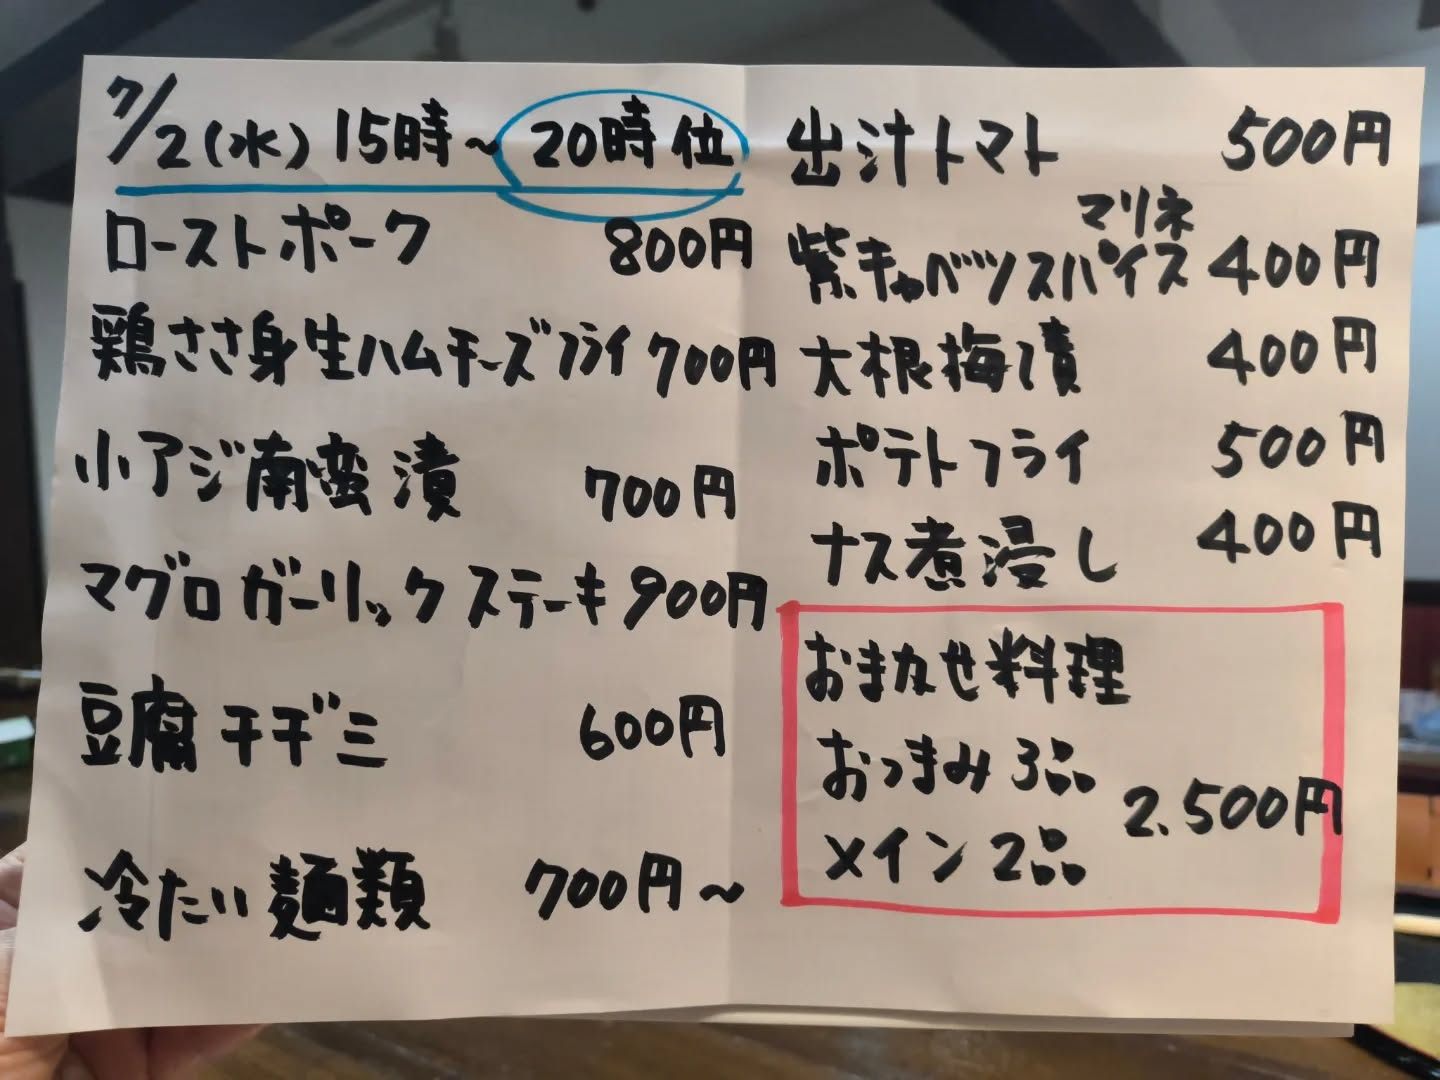 7/2(水) 15時~20時位
ローストポーク 800円
鶏ささ身生ハムチーズフライ 700円
小アジ南蛮漬 700円
マグロガーリックステーキ 900円
豆腐チヂミ 600円
冷たい麺類 700円~
出汁トマト 500円
マリネ
紫キャベツスパイス 400円
大根梅漬 400円
ポテトフライ 500円
ナス煮浸し 400円
おまかせ料理
おつまみ3品
2.500円
メイン2品